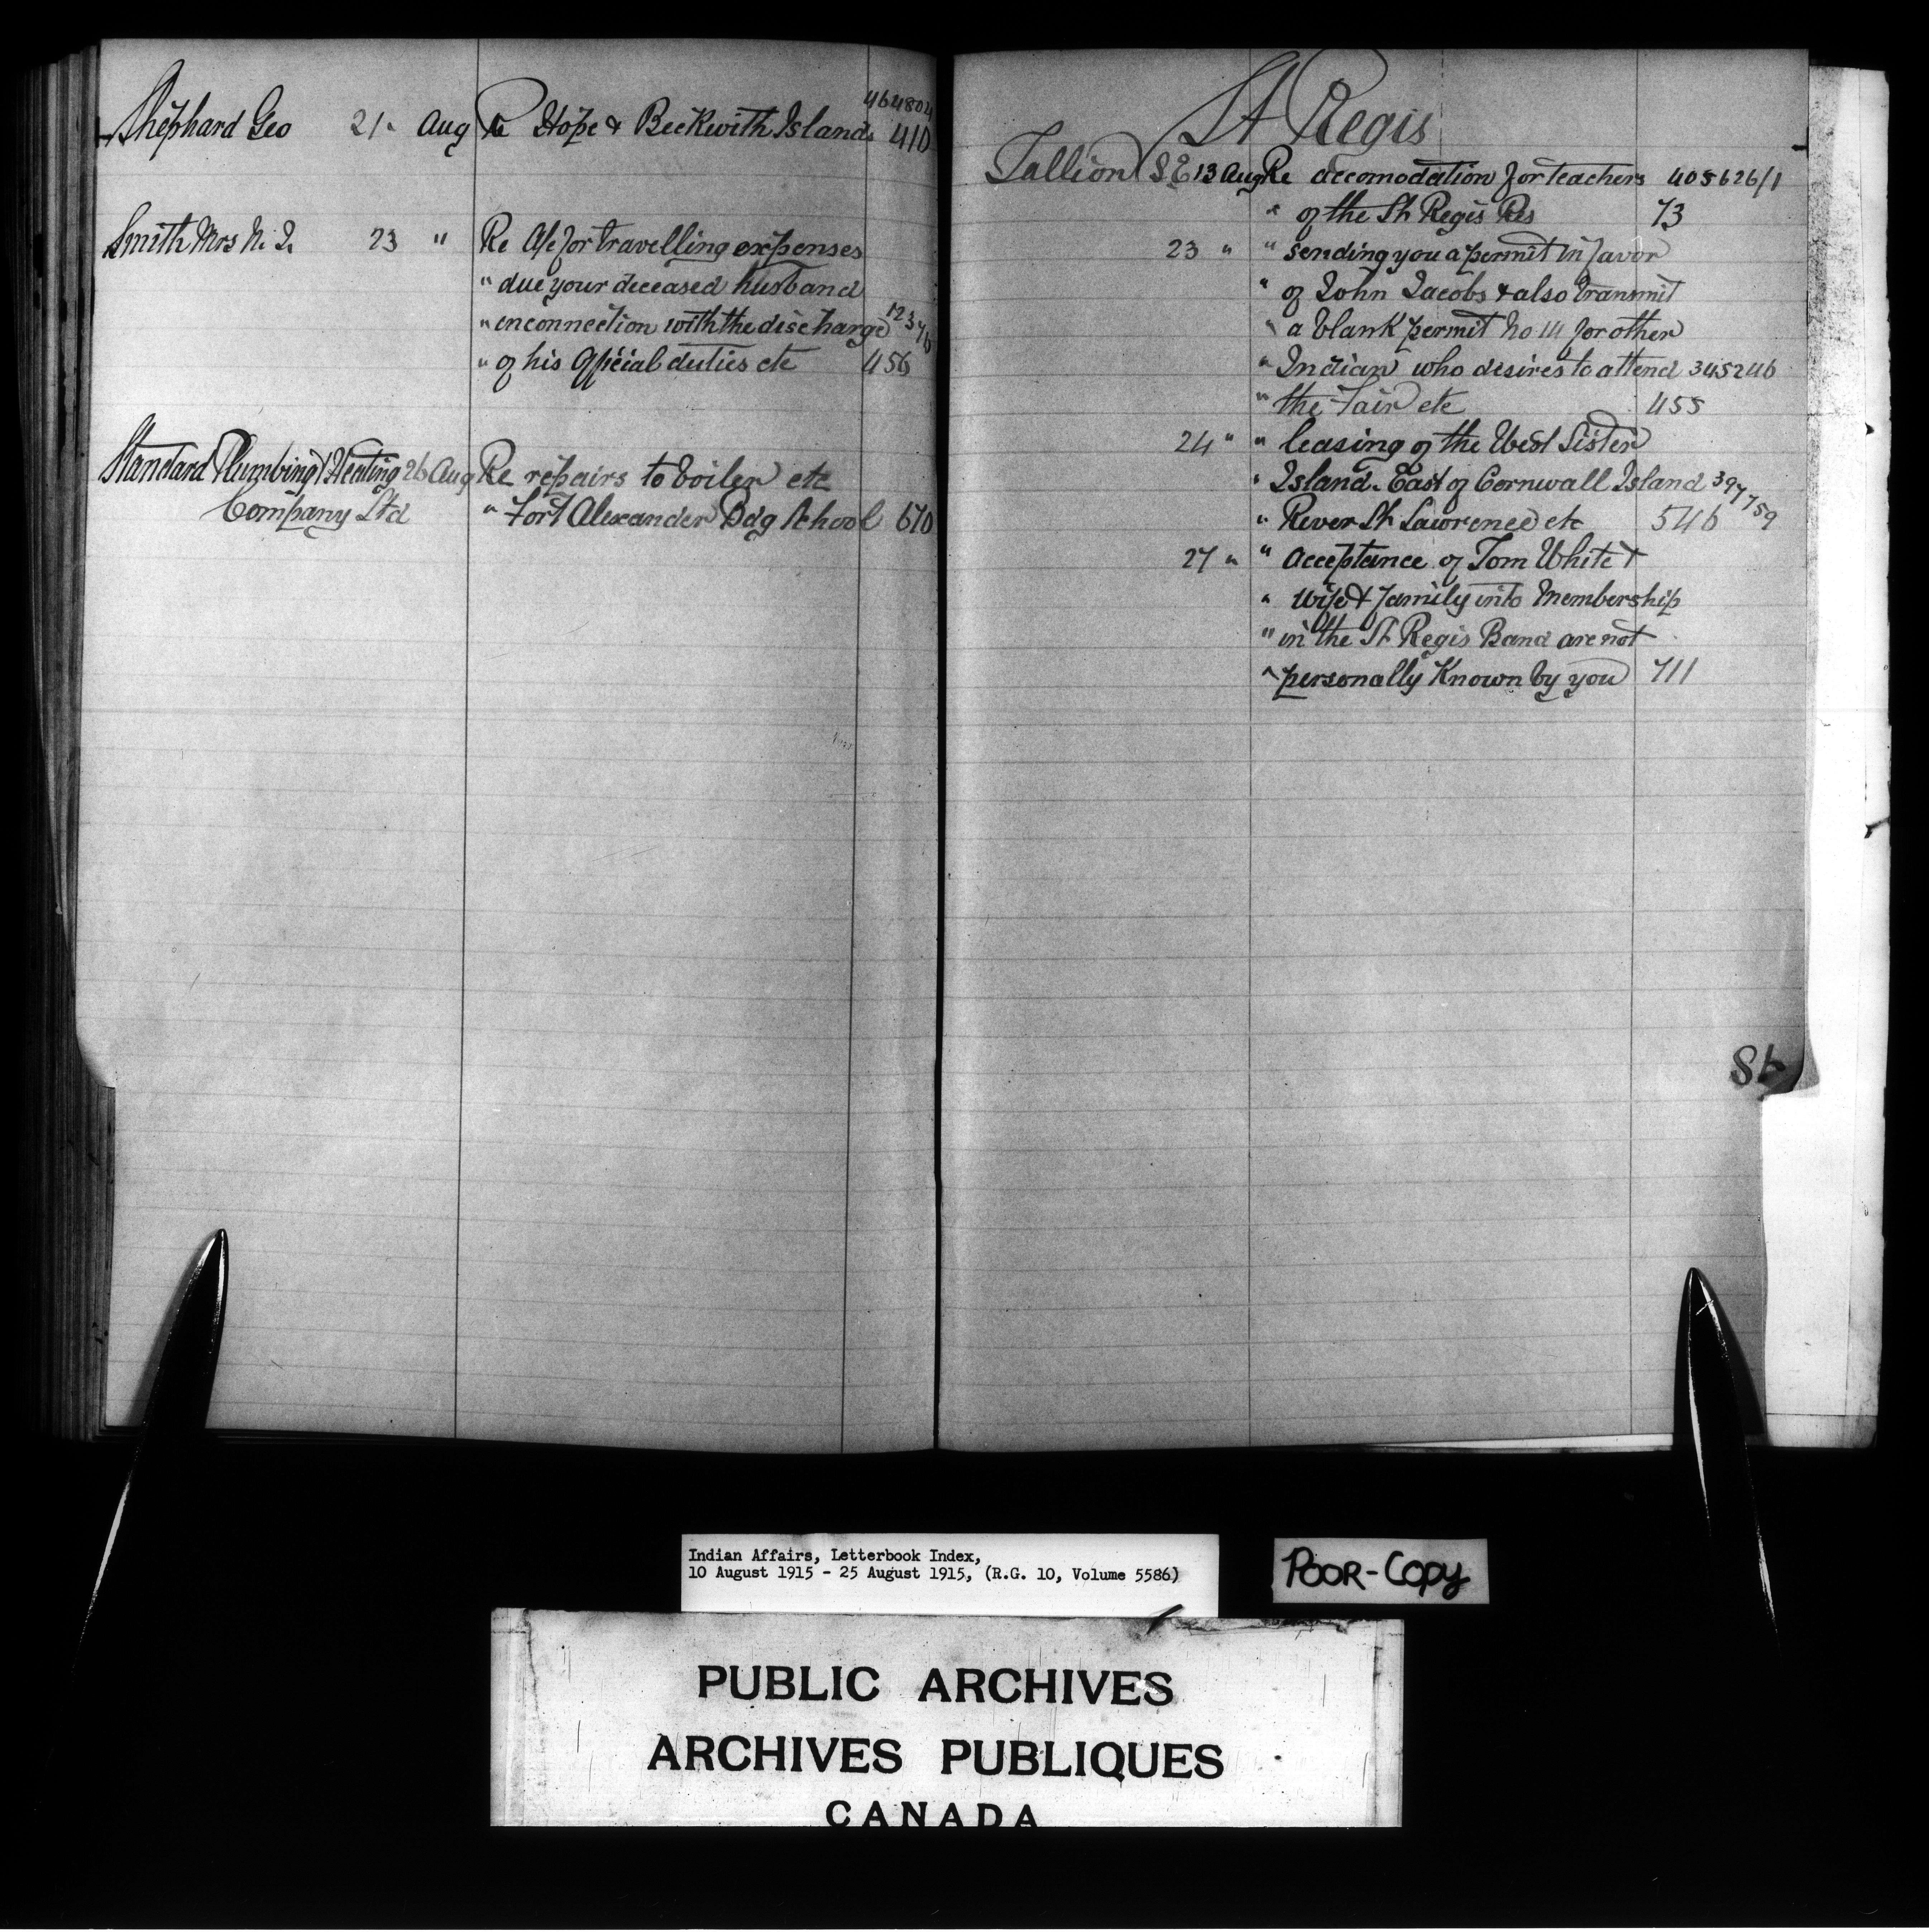 Shephard Geo 21 " Aug Re Hope & Beckwith Islands 464804 410
Smith Mrs N. J. 23 " Re A/c for travelling expenses
" due your deceased husband
" in connection with the discharge
" of his official duties etc 456
Standard Plumbing & Heating 26 Aug Re repairs to boiler etc
Company Ltd " Fort Alexander Bdg School 670
St Regis
Tallion S E 13 Aug Re accomodation for teachers 405626/1
" of the St Regis Res 73
23 " " sending you a permit in favor
" of John Jacobs & also transmit
" a blank permit No 111 for other
" Indian who desires to attend 345246
" the Fair etc 455
24 " " leasing of the West Sister
" Island East of Cornwall Island 397759
" River St Lawrence etc 546
27 " " acceptance of Tom White &
" wife & family into Membership
" in the St Regis Band are not
" personally Known by you 711
Indian Affairs, Letterbook Index,
10 August 1915 - 25 August 1915, (R.G. 10, Volume 5586)
POOR-COPY
PUBLIC ARCHIVES
ARCHIVES PUBLIQUES
CANADA